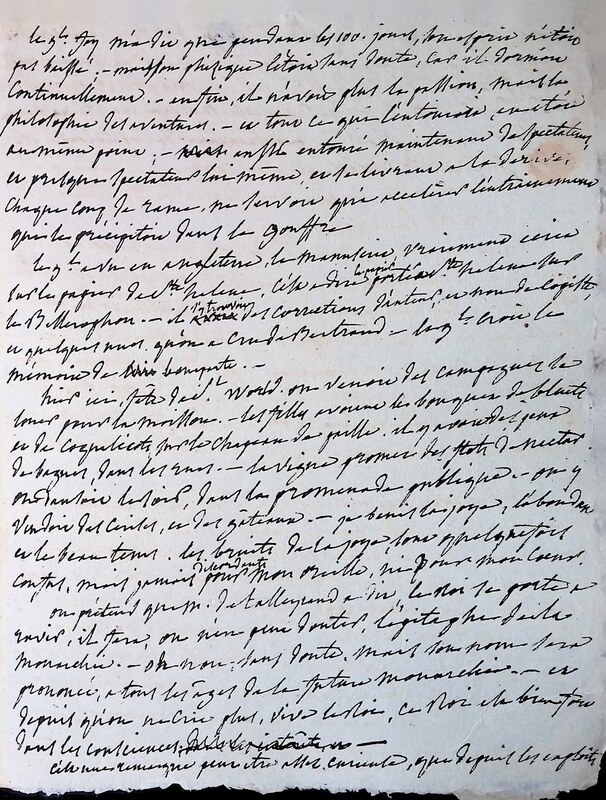 le gl. foy m'a dit que pendant les 100. jours, son esprit n'étoit
pas baissé. – mais son physique l'étoit sans doute, car il dormoit
continuellement. – enfin, il n'avoit plus la passion, mais la
philosophie des aventures. – et tout ce qui l'entouroit, en étoit
au même point, – aussi entouré maintenant de spectateurs,
et presque spectateur lui même, et se livrant à la dérive,
chaque coup de rame, ne servoit qu'à accélérer l'entrainement
qui le précipitoit dans le gouffre
le gl. a vu en angleterre, le manuscrit vraiment écrit
sur le papier de ste helene, c'est a dire porté à ste helene sur
le Bellerophon. – il s'y trouvoit des corrections d'auteur, et non de copiste
et quelques unes, qu'on a cru de Bertrand – le gl. croit le
mémoire de bonaparte. –
hier ici, fête de st. on venoit des campagnes se
louer pour la moisson. – les filles avoient les bouquets de bluets
et de coquelicots sur le chapeau de paille. il y avoit des jeux
de bagues, dans les rues. – la vigne promet des flots de nectar
on dansoit le soir, dans la promenade publique. – on y
vendoit des cerises, et des gâteaux. – je benis la joye, l'abondance
et le beau tems. les bruits de la joye, sont quelquefois
confus, mais jamais discordants pour mon oreille, ni pour mon cœur.
on prétend que m. de talleyrand a dit, le Roi se porte a
ravir, il fera, on n'en peut douter, l'épitaphe de la
monarchie. – oh non, sans doute. mais son nom sera
prononcé, a tous les âges de la future monarchie. – et
depuis qu'on ne crie plus, vive le Roi, ce Roi est bien
dans les consciences
c'est une remarque peut être assez curieuse, que depuis les exploits